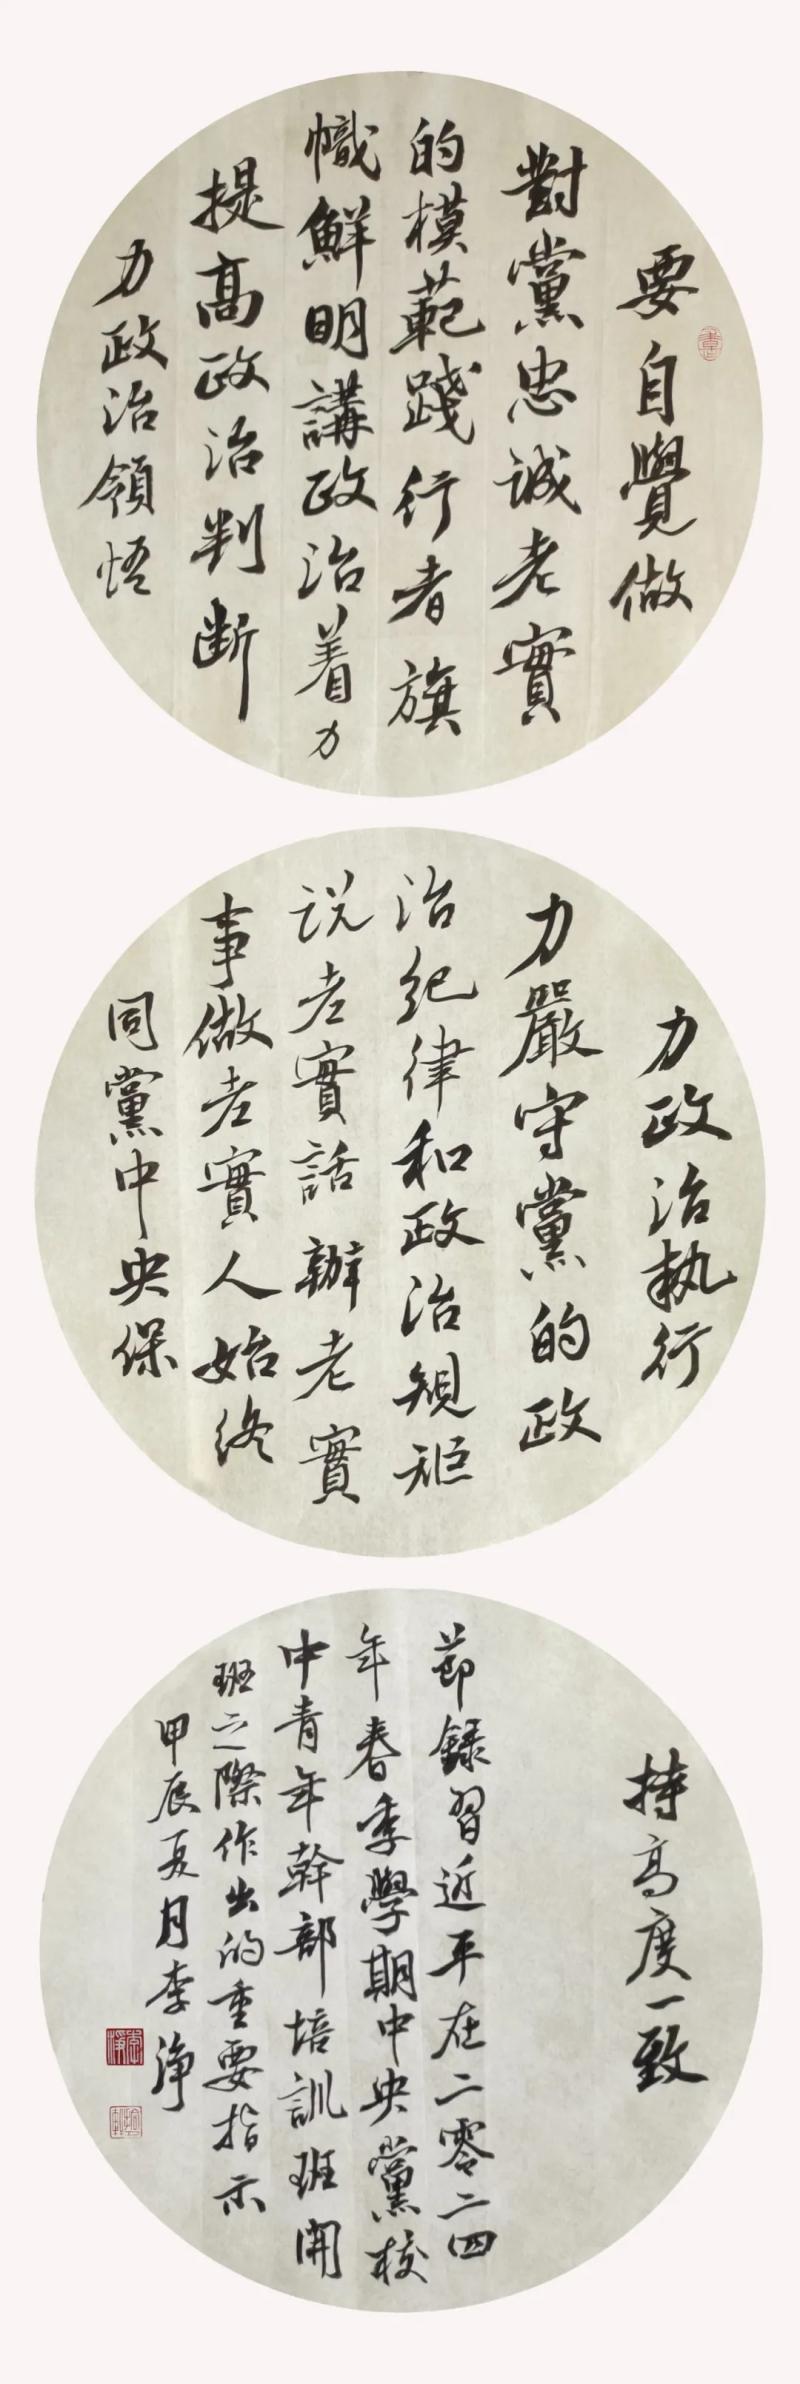 要自覺做
對黨忠誠老實
的模範踐行者旗
幟鮮明講政治着力
提高政治判断
力政治領悟
力政治执行
力嚴守黨的政
治纪律和政治規矩
说老實話辦老實
事做老實人始终
同黨中央保
持高度一致
節録習近平在二零二四
年春季學期中央黨校
中青年幹部培訓班開
班之際作出的重要指示
甲辰夏月李净